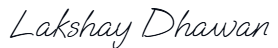 Lakshay Dhawan